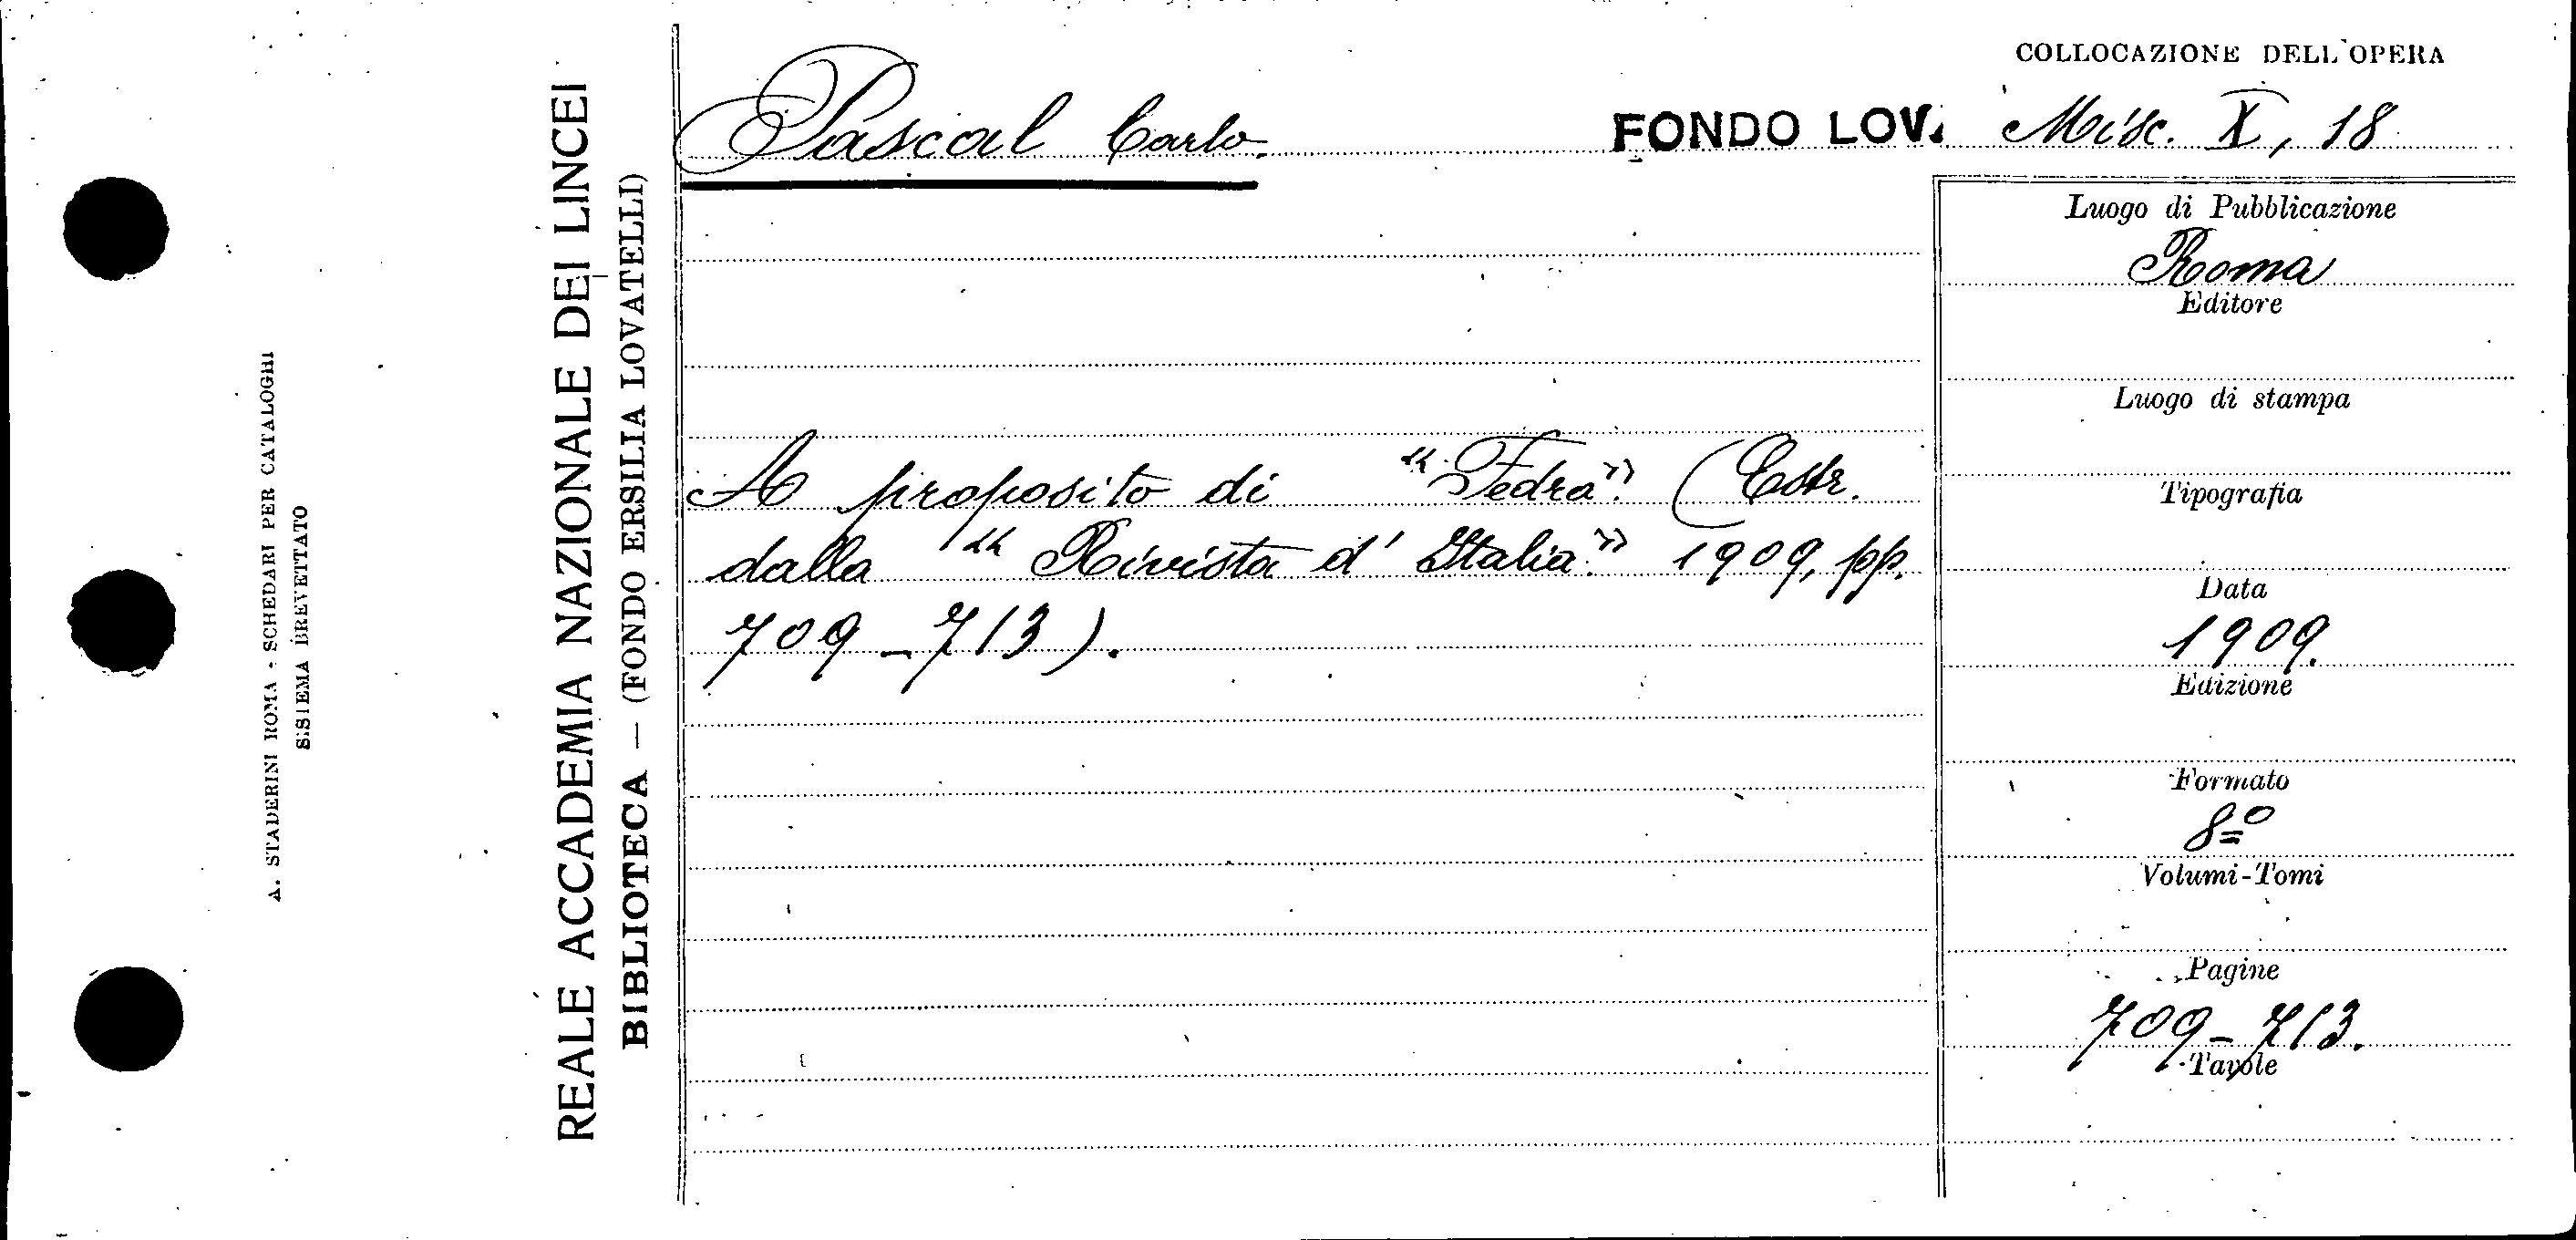 A. STADERINI ROMA - SCHEDARI PER CATALOGHI
SISTEMA BREVETTATO
REALE ACCADEMIA NAZIONALE DEI LINCEI
BIBLIOTECA — (FONDO ERSILIA LOVATELLI)
COLLOCAZIONE DELL'OPERA
Pascal Carlo.
FONDO LOV. Misc. X, 18
A proposito di "Fedra". (Estr.
dalla "Rivista d'Italia" 1909, pp.
709-713).
Luogo di Pubblicazione
Roma
Editore
Luogo di stampa
Tipografia
Data
1909.
Edizione
Formato
8º
Volumi-Tomi
Pagine
709-713.
Tavole